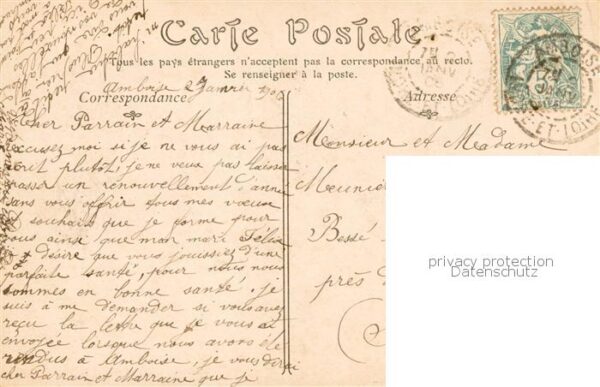 Carte Postale
Tous les pays étrangers n'acceptent pas la correspondance au recto.
Se renseigner à la poste.
Correspondance
Adresse
Amboise 2 Janvier 190
Cher Parrain et Marraine
excusez moi si je ne vous ai pas
écrit plutot, je ne veux pas laisser
passer un renouvellement d'année
sans vous offrir tous mes vœux
et souhaits que je forme pour
vous ainsi que mon mari Félix
désire que vous jouissiez d'une
parfaite santé, pour nous nous
sommes en bonne santé, je
suis à me demander si vous avez
reçu la lettre que je vous ai
envoyée lorsque nous avons été
rendus à Amboise, je vous dirai
cher Parrain et Marraine que je
Monsieur et Madame
Meunie
Bessé
près d
AMBOISE
INDRE-ET-LOIRE
5
privacy protection
Datenschutz